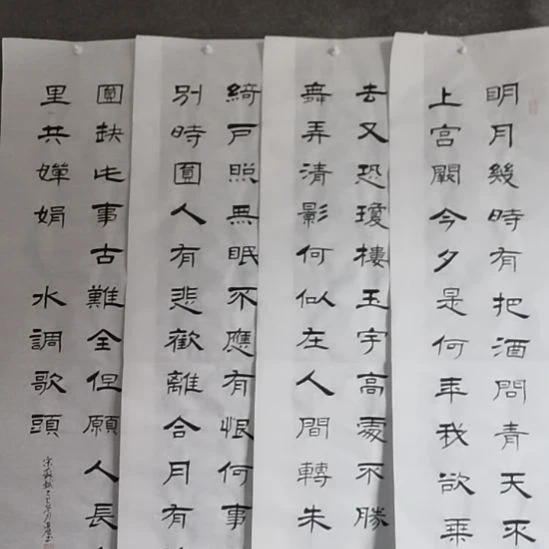 明月幾時有把酒問青天不
上宮闕今夕是何年我欲乘
去又恐瓊樓玉宇高處不勝
舞弄清影何似在人間轉朱
綺戶照無眠不應有恨何事
別時圓人有悲歡離合月有
圓缺此事古難全但願人長
里共嬋娟 水調歌頭
宋蘇軾